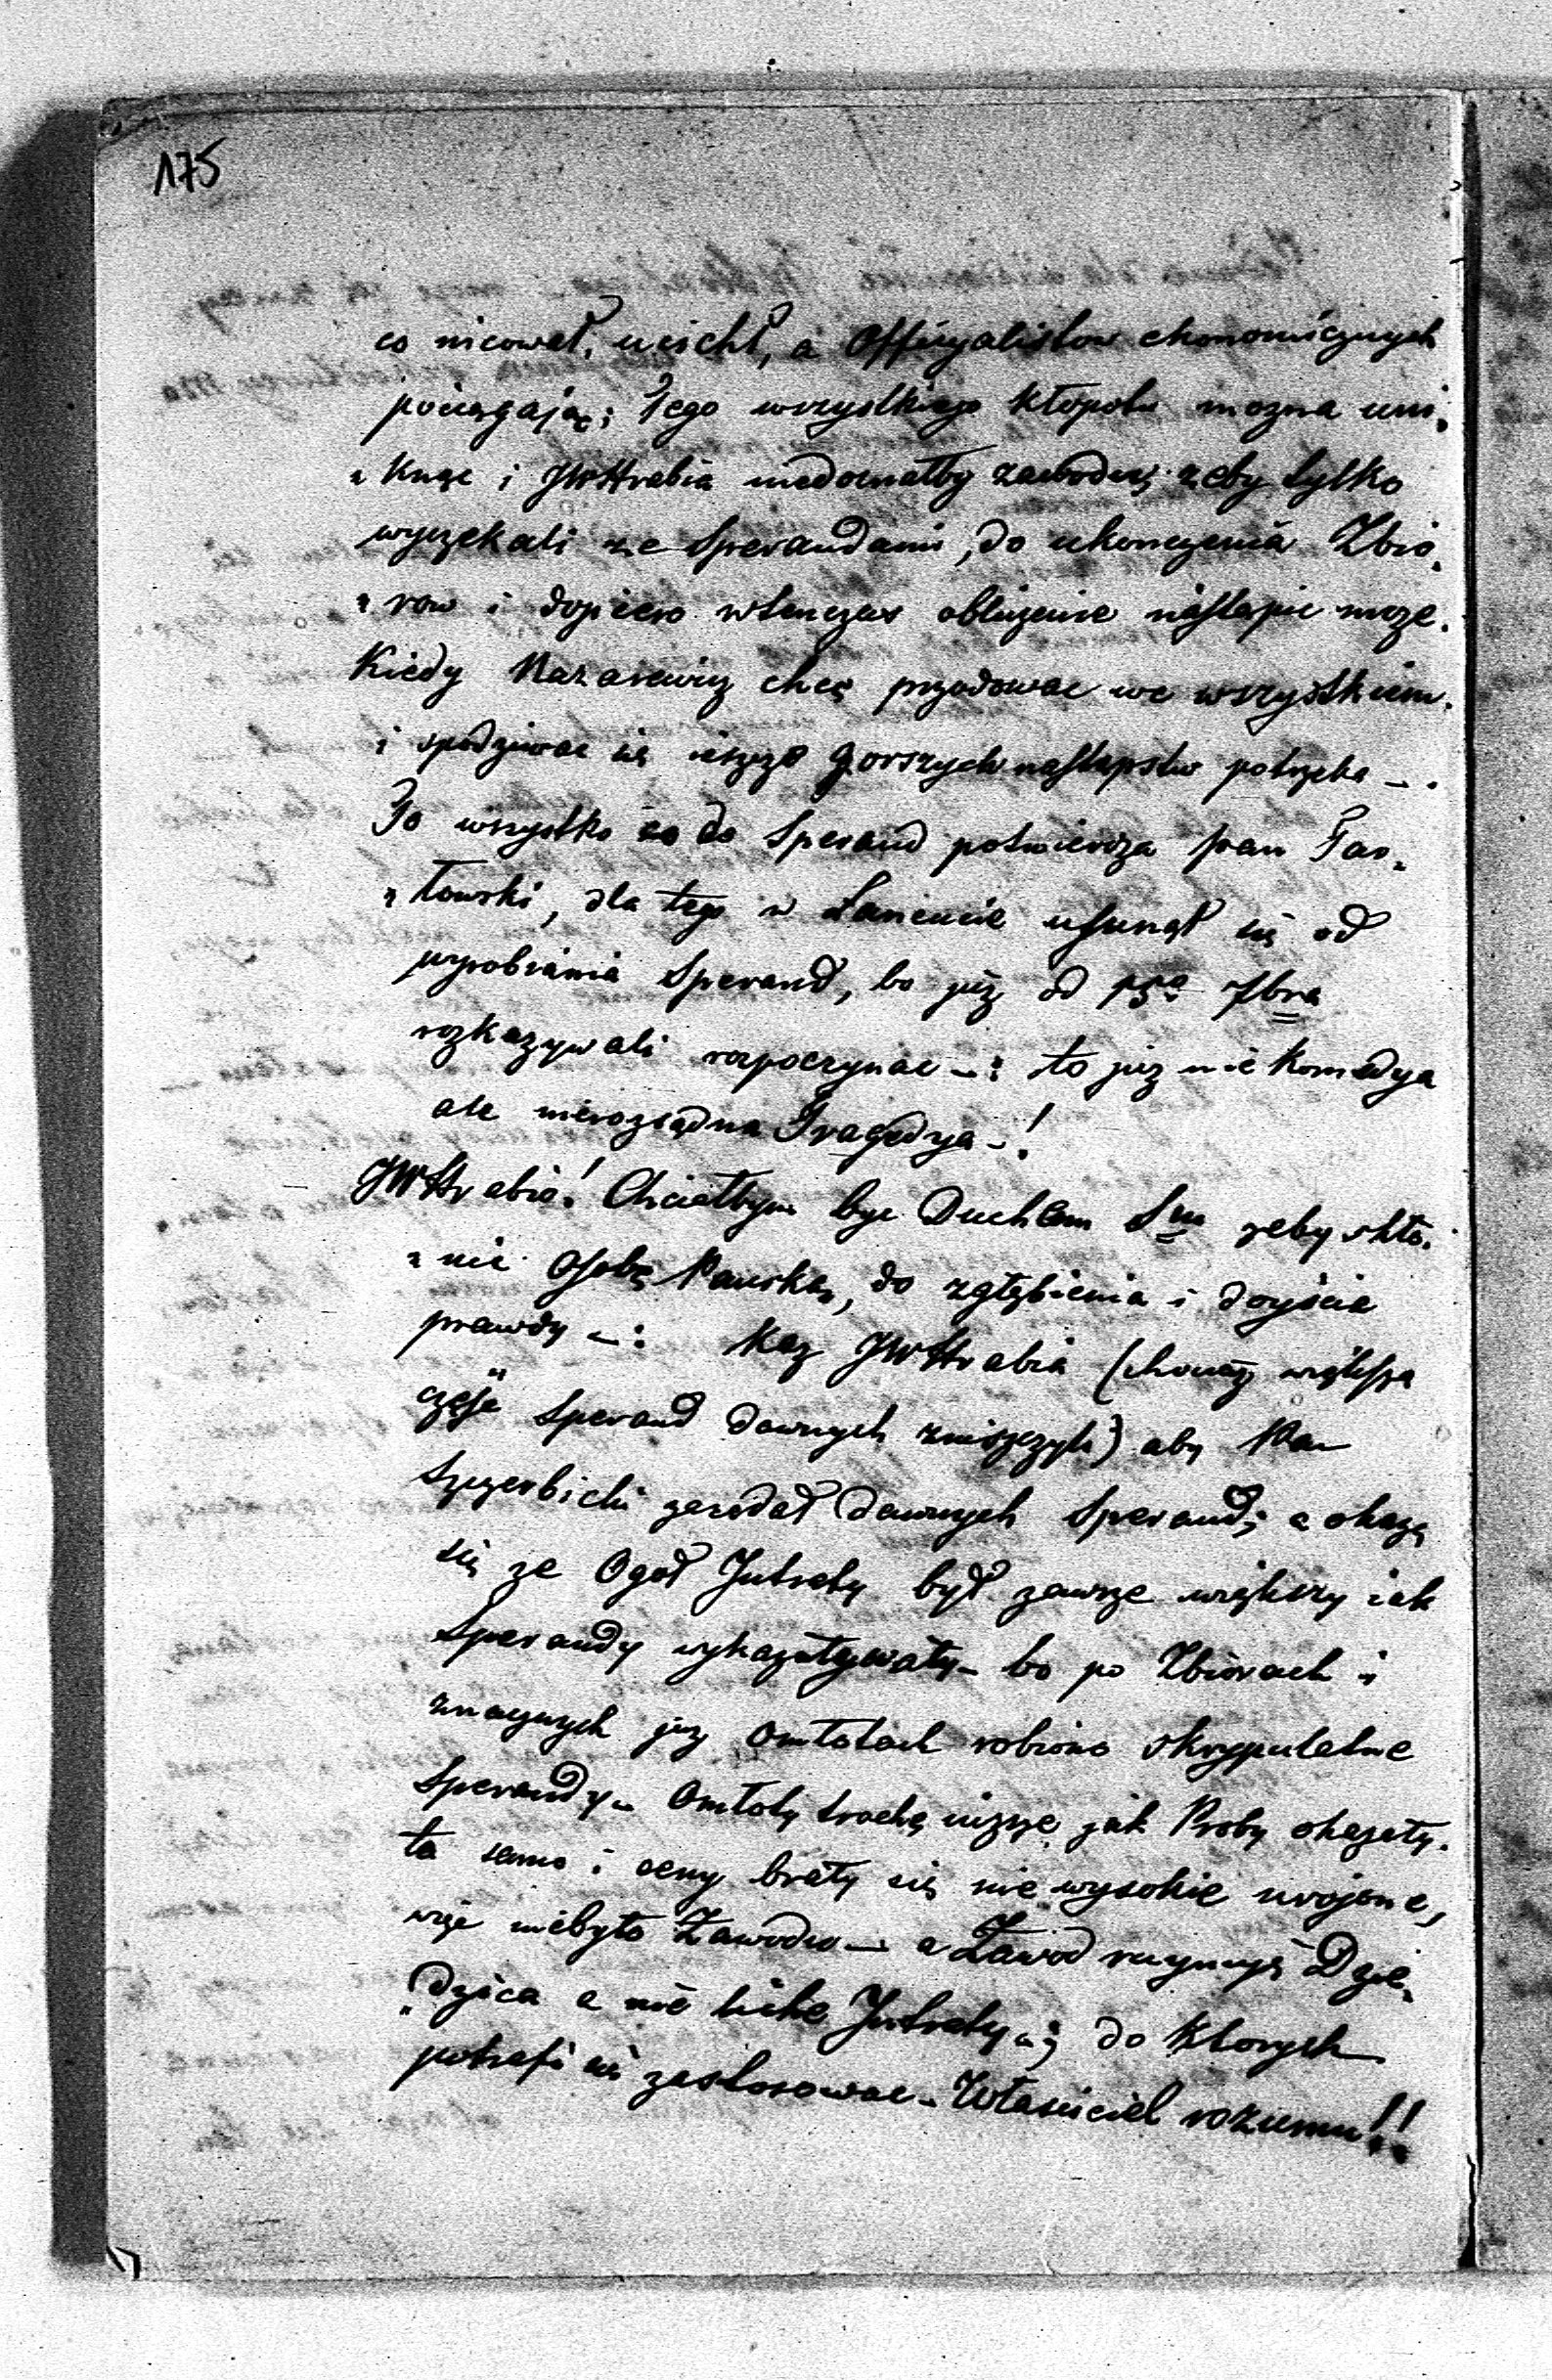 175
co nicował, uciekł, a Officyalistow ekonomicznych
pociągają; Tego wszystkiego kłopotu mozna uni,
„knąc i JWHrabia niedoznałby zawodu, zeby tylko
wyczekali ze Sperandami, do ukonczenia Zbio,
„row i dopiero wtenczas obliczenie nastąpic moze.
Kiedy Nazarewicz chce przodowac we wszystkiem.
i spodziewac się ieszcze gorszych następstw potrzeba –.
To wszystko co do Sperand potwierdza pan Tar,
„łowski, dla tego w Łancucie usunął się od
wyrobiania Sperand, bo już od 15º 7bra
rozkazywali rozpoczynac –: to już nie komedya
ale nierozsądna Tragedya –!
JWHrabio! Chciałbym byc Duchem Sm zeby skło,
„nic Osobę Panską, do zgłębienia i dojścia
prawdy –: Kaz JWHrabia (chociaz większa
częsc Sperand dawnych zniszczyli) aby Pan
Szczerbicki zarądał dawnych Sperand; a okazą
się ze Ogoł Intraty był zawsze większy iak
Sperandy wykazywały – bo po Zbiorach i
znacznych juz omłotach robiono skrypulatne
Sperandy – Omłoty trochę nizsze jak Proby okazały.
to samo i ceny brały się nie wysokie urojone,
więc niebyło Zawodu – a Zawod rujnuje Dzie,
„dzica a nie liche Intraty –; do ktorych
potrafi się zastosowac – Własciciel rozumu!!